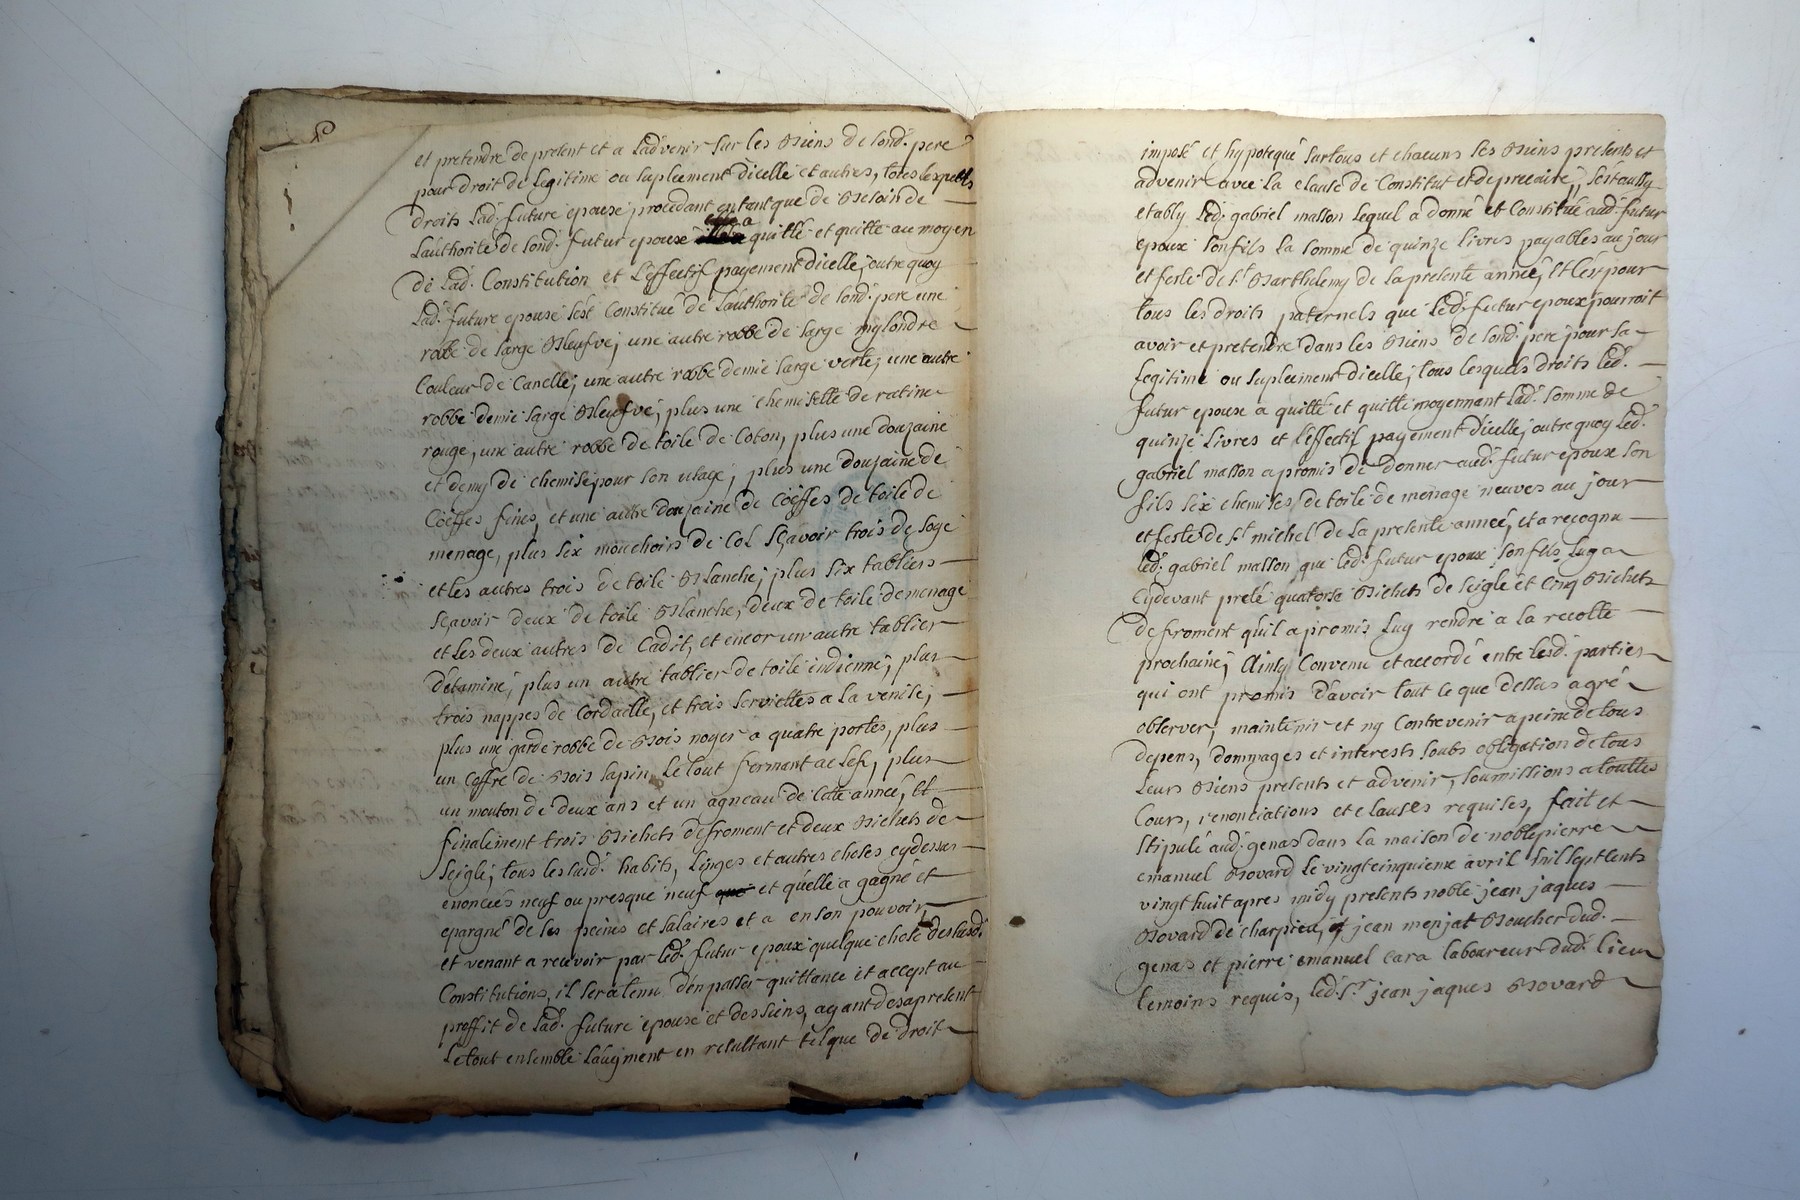 et pretendre de present et a Ladvenir sur les Biens de sond. pere
pour droit de Legitime ou supleement dicelle et autres, tous lesquels
droits Lad. future epouse, procedant entantque de Besoin de
Lauthorité de sond. futur epoux elle a quitté et quitte au moyen
de Lad. Constitution et Leffectif payement dicelle, outre quoy
Lad. future epouse sest Constitué de Lauthorité de sond. pere une
robe de sarge Neufve, une autre robbe de sarge mylondre
Couleur de Canelle, une autre robbe demie sarge verte, une autre
robbe demie sarge Neufve, plus une chemisette de ratine
rouge, une autre robbe de toile de Coton, plus une douzaine
et demy de chemise pour son usage, plus une douzaine de
Coëffes fines, et une autre douzaine de Coëffes de toile de
menage, plus six mouchoirs de Col sçavoir trois de soye
et les autres trois de toile Blanche, plus six tabliers
sçavoir deux de toile Blanche, deux de toile de menage
et Les deux autres de Cadit, et encor un autre tablier
detamine, plus un autre tablier de toile indienne, plus
trois nappes de Cordaelle, et trois serviettes a la venise,
plus une garderobbe de Bois noyer a quatre portes, plus
un Coffre de Bois sapin Le tout fermant a clef, plus
un mouton de deux ans et un agneau de Cette année, Et
finalement trois Bichets de froment et deux Bichets de
seigle, tous lesusd. habits, Linges et autres choses cydessus
enoncées neuf ou presque neuf que et quelle a gagné et
epargné de ses peines et salaires et a en son pouvoir,
et venant a recevoir par Led. futur epoux quelque chose des susd.
Constitutions, il sera tenu den passer quittance et accept au
proffit de Lad. future epouse et des siens, ayant des apresent
Le tout ensemble Laugment en resultant tel que de droit
imposé et hypotequé sur tous et chacuns ses Biens presents et
advenir avec La clause de Constitut et de precaire, sest aussy
etably Led. gabriel masson Lequel a donné et Constitué aud. futur
epoux son fils La somme de quinze livres payables au jour
et feste de st. Barthelemy de la presente année, Et Cest pour
tous les droits paternels que Led. futur epoux pourroit
avoir et pretendre dans les Biens de sond. pere pour sa
Legitime ou supleement dicelle, tous lesquels droits Led.
futur epoux a quitté et quitte moyennant Lad. somme de
quinze Livres et Leffectif payement dicelle, outre quoy Led.
gabriel masson a promis de donner aud. futur epoux son
fils six chemises de toile de menage neuves au jour
et feste de st. michel de La presente année, et a recognu
Led. gabriel masson que Led. futur epoux son fils Luy a
Cydevant preté quatorse Bichets de seigle et Cinq Bichets
de froment quil a promis Luy rendre a la recolte
prochaine, Ainsy Convenu et accordé entre Lesd. parties
qui ont promis d'avoir tout Ce que dessus agré
observer, maintenir et ny Contrevenir a peine de tous
depens, dommages et interests soubs obligation de tous
Leurs Biens presents et advenir, soumissions a touttes
Cours, renonciations et clauses requises, fait et
stipulé aud. genas dans la maison de noble pierre
emanuel Bovard le vingtcinquieme avril mil sept Cents
vingthuit apres midy presents noble jean jaques
Bovard de charpieu, et jean menjat Boucher dud.
genas et pierre emanuel Cara laboureur dud. lieu
temoins requis, led. sr. jean jaques Bovard